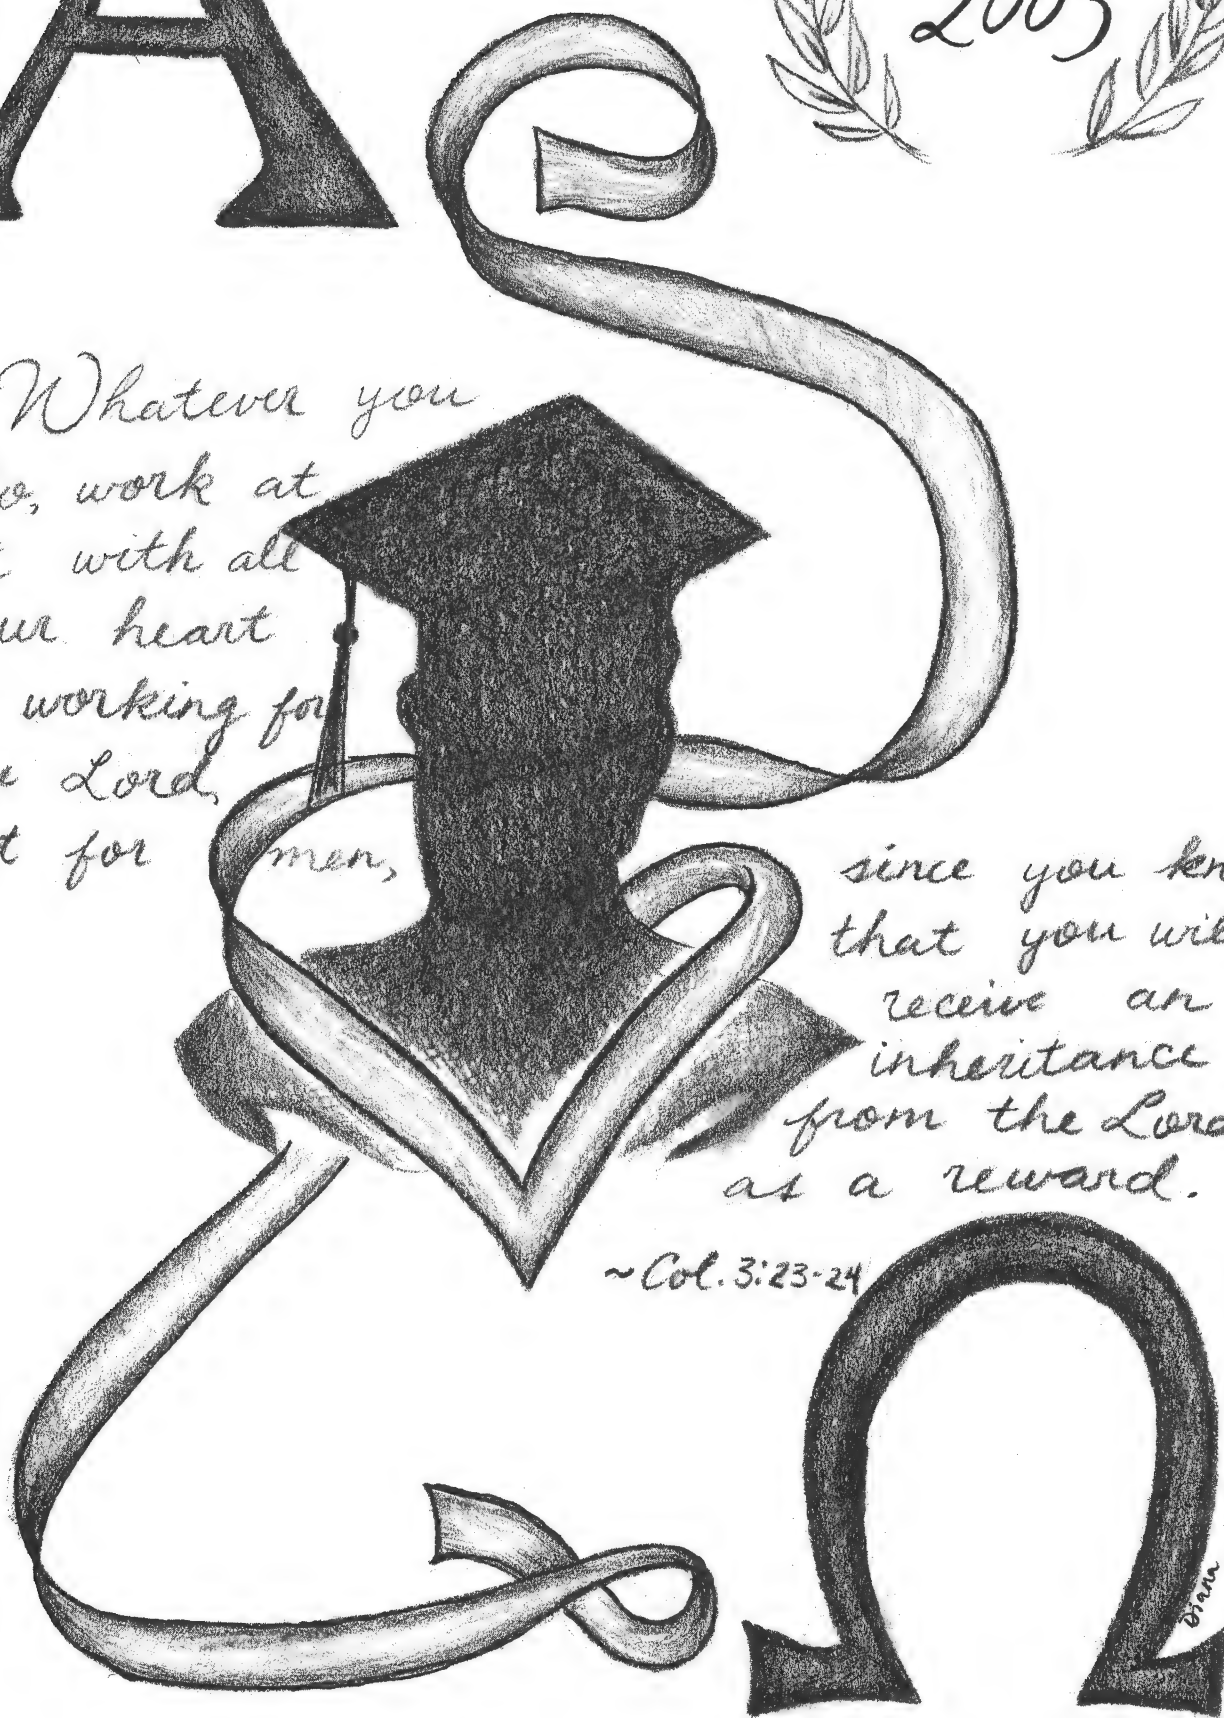 A
2005
Whatever you
o, work at
t with all
ur heart
working for
e Lord,
t for men,
since you kn
that you wil
receive an
inheritance
from the Lord
as a reward.
~Col. 3:23-24
Ω
Diana